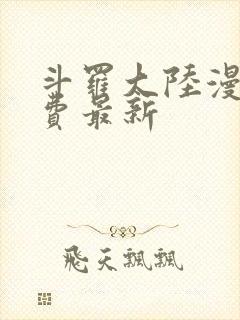 斗羅大陸漫
費最新
飛天飄飄